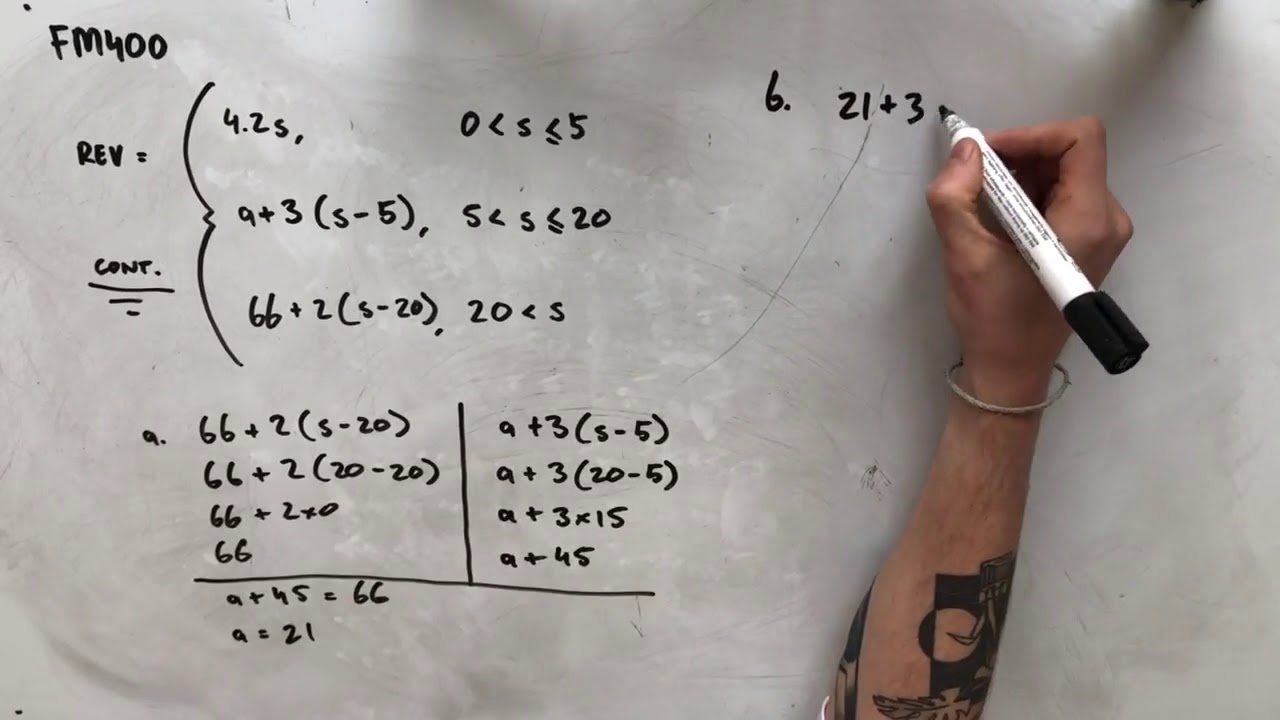 FM400
REV =
4.2s, 0 < s ≤ 5
a+3(s-5), 5 < s ≤ 20
CONT.
66+2(s-20), 20 < s
a. 66+2(s-20)
66+2(20-20)
66+2×0
66
a+3(s-5)
a+3(20-5)
a+3×15
a+45
a+45 = 66
a = 21
6. 21+3